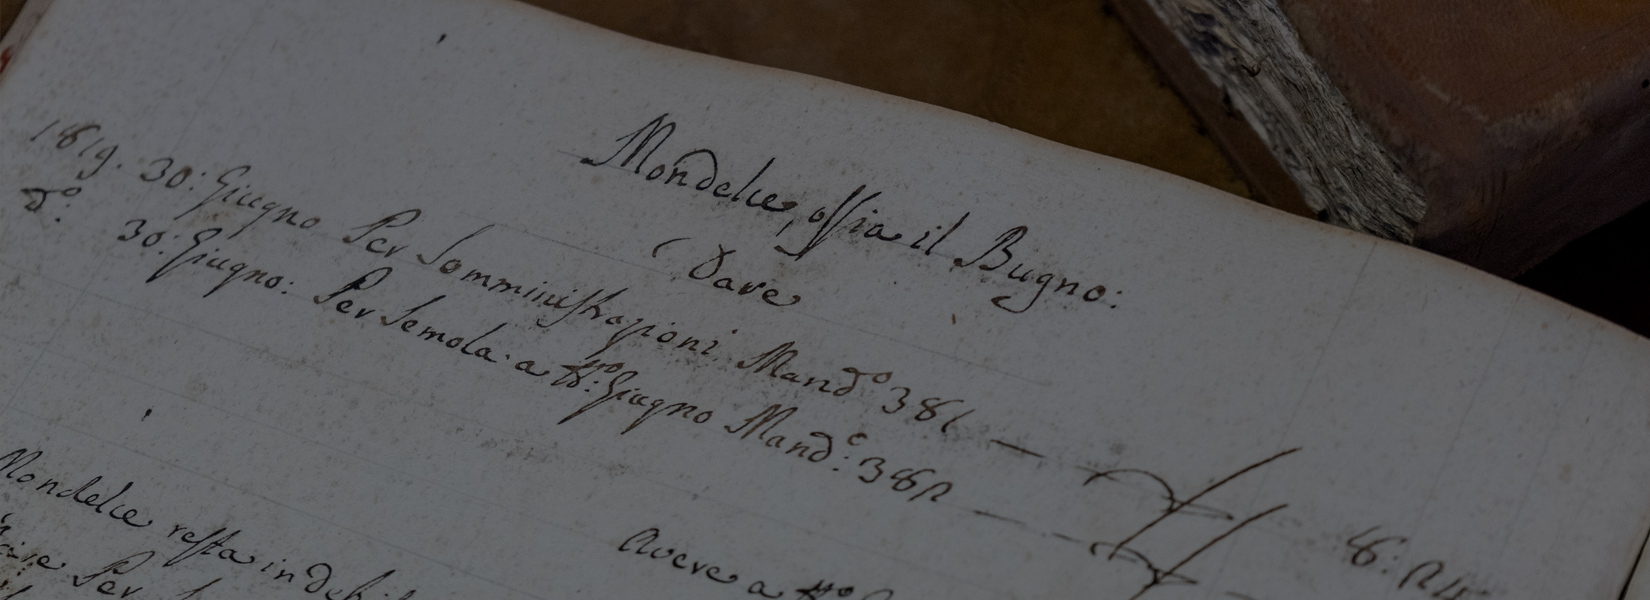 Mondelce, ossia il Bugno:
Dare
1819. 30: Giugno Per Somministrazioni Mand.º 381
d.º 30: Giugno: Per Semola a Giugno Mand.º: 382
Mondelce resta in
Avere a
Per